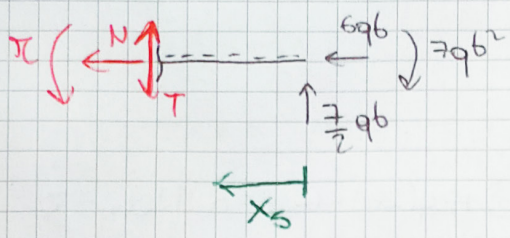 N
6qb
7qb²
T
7/2 qb
x₅